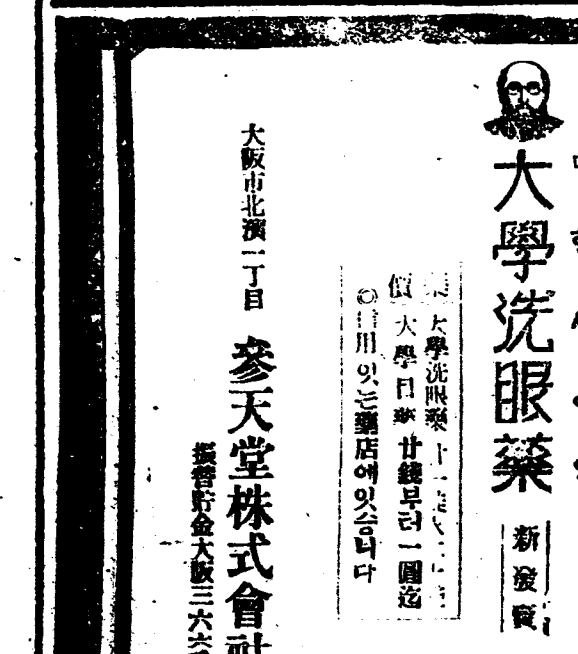 大學洗眼藥
新發賣
藥價
大學洗眼藥
大學目藥 廿錢부터 一圓迄
◎信用잇는藥店에잇슴니다
大阪市北濱一丁目
參天堂株式會社
振替貯金大阪三六六